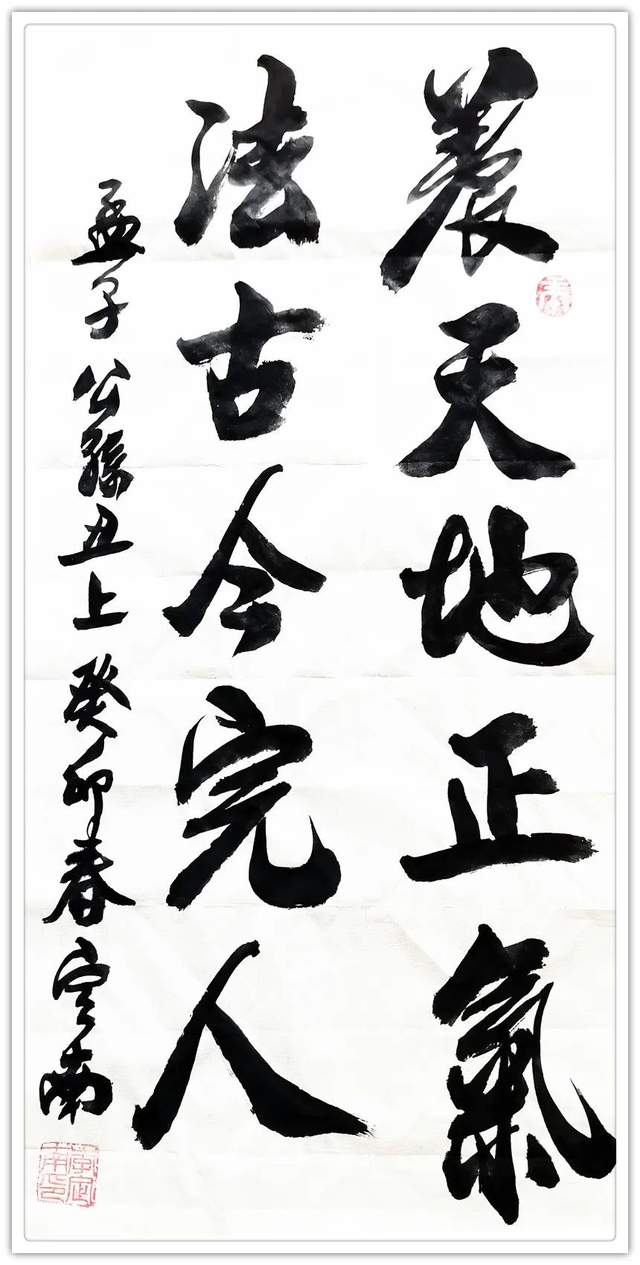 養天地正氣
法古今完人
孟子公孫丑上癸卯春定南